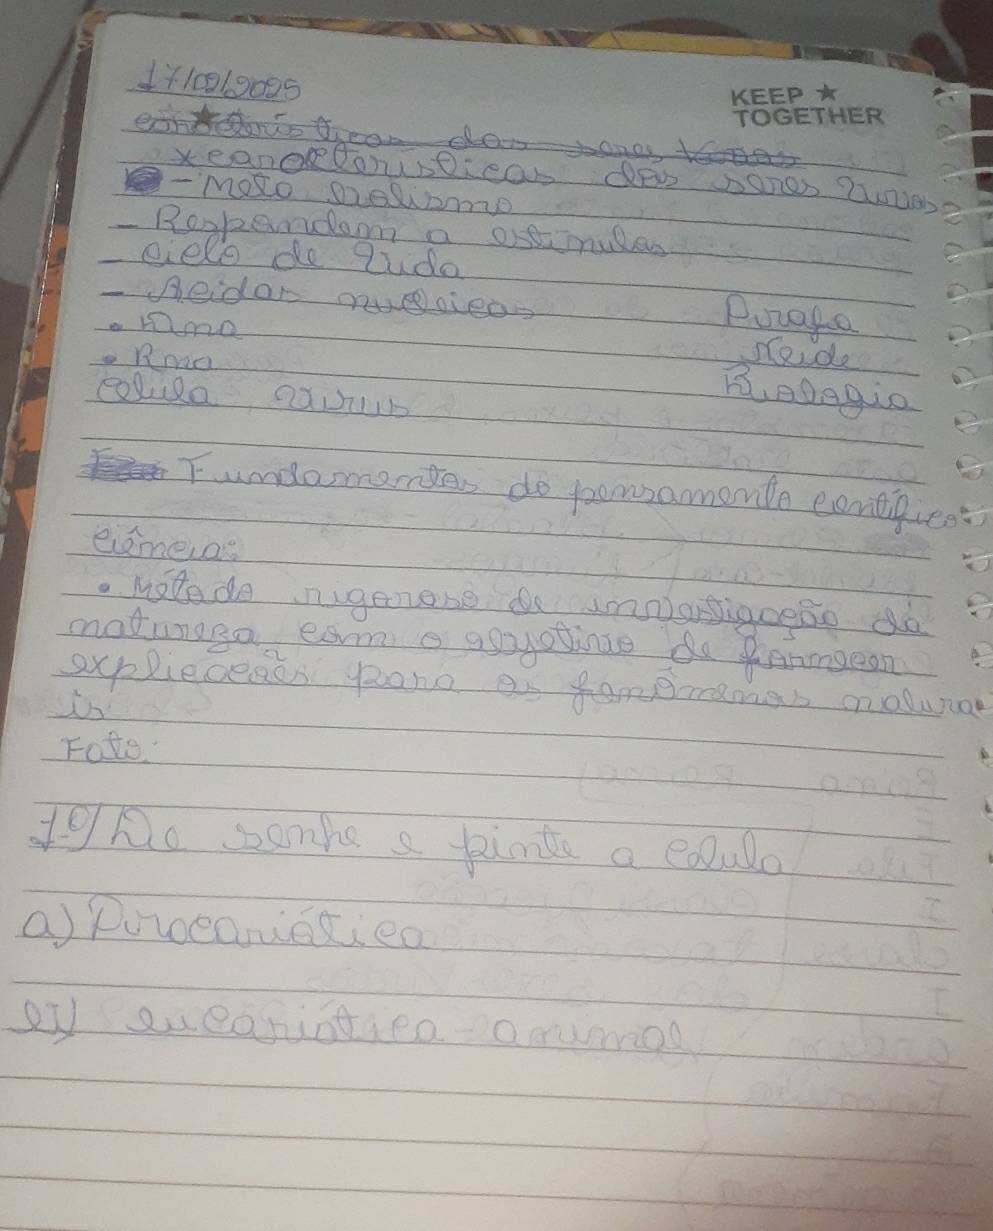 17/02/2025
KEEP ★
TOGETHER
características dos seres vivos
x caracteristicas dos seres vivos
- Meta bolismo
- Respondem a estimulos
- ciclo de vida
- Acidos nucleicos
Profa
• Dna
Neide
• Rna
Biologia
celula virus
Fundamentos do pensamento centifico
ciência:
• Método rigoroso de investigação da
natureza com o objetivo de formecer
explicações para os fenômenos natura
is
Fato:
1º) De senhe e pinte a celula
a) Procariótica
eucariótica - animal